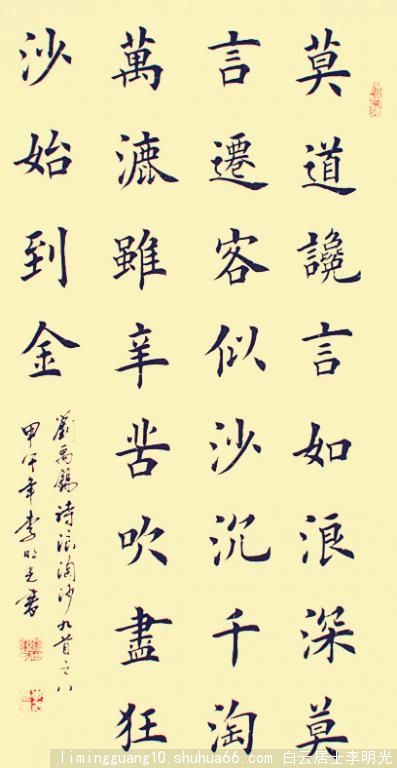 莫道讒言如浪深莫
言遷客似沙沉千淘
萬漉雖辛苦吹盡狂
沙始到金
劉禹錫詩浪淘沙九首之八
甲午年李明光書
limingguang10.shuhua66.com 白云居士李明光